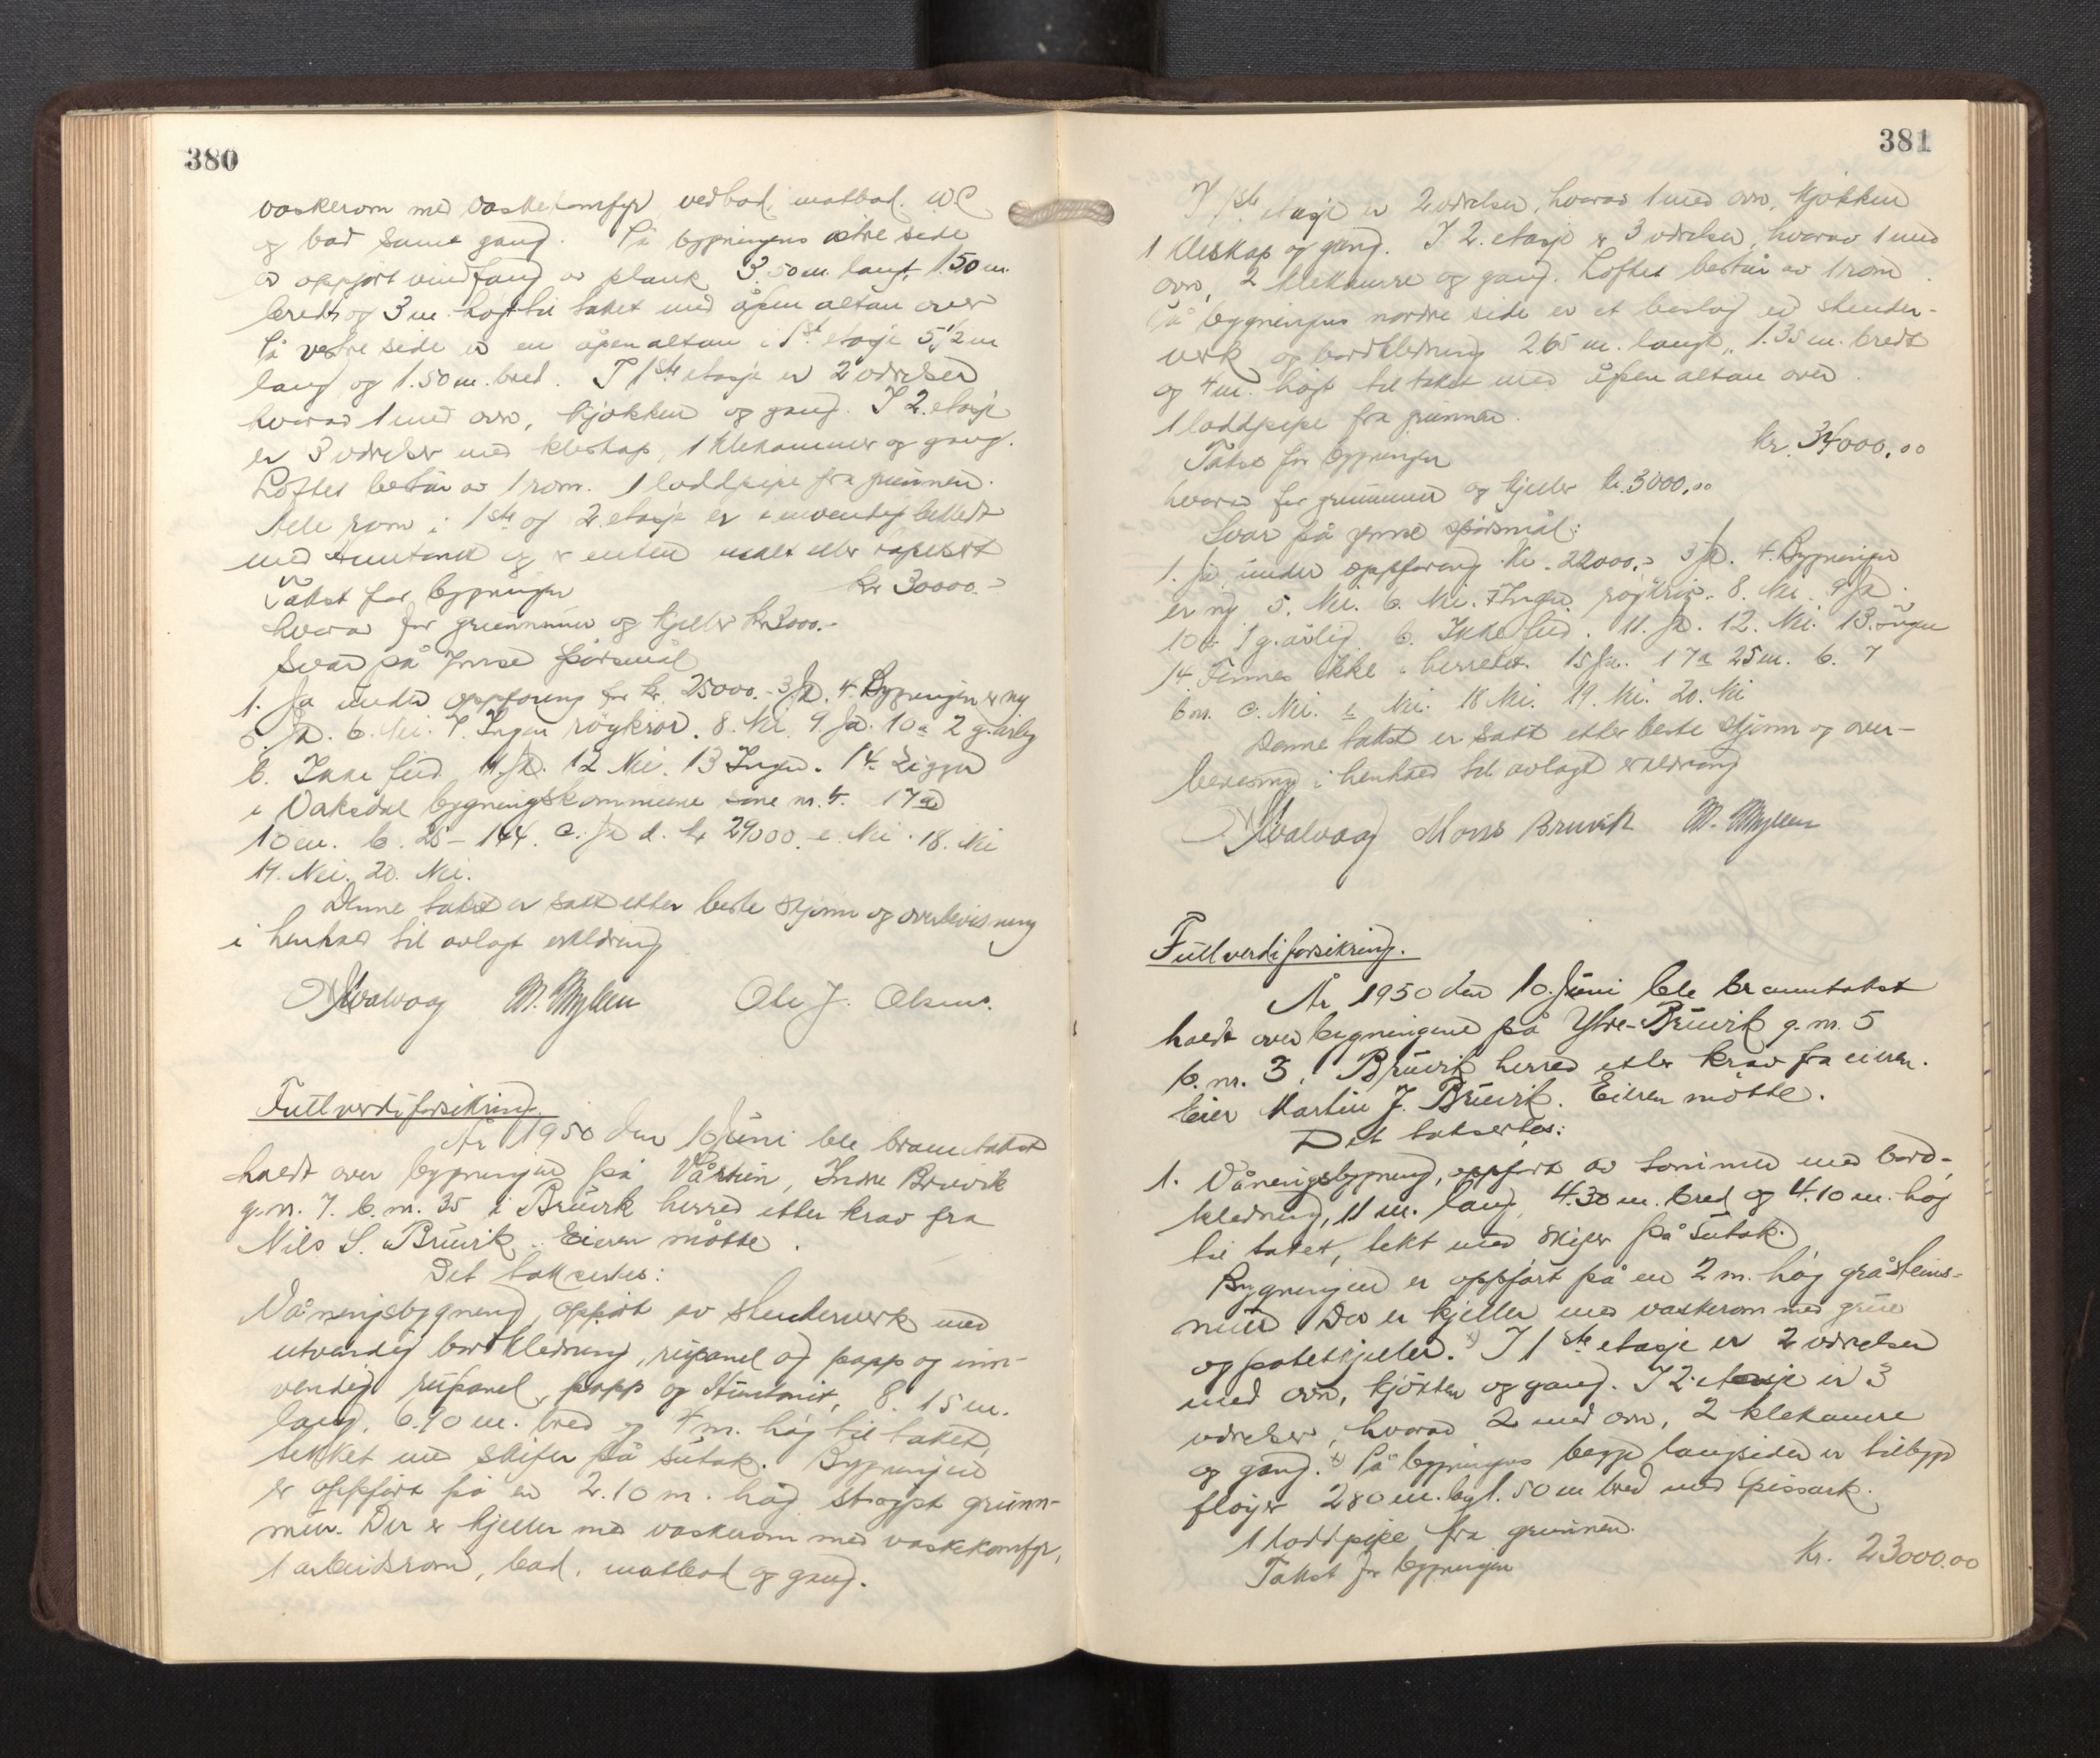 380
vaskerom med vaskekomfyr, vedbod, matbod. WC
og bad samt gang. På bygningens østre side
er oppført vindfang av plank 3.50 m. langt, 1.50 m.
bredt og 3 m. høgt til taket med åpen altan over
På vestre side er en åpen altan i 1st etasje 5 1/2 m
lang og 1.50 m. bred. I 1ste etasje er 2 værelser
hvorav 1 med ovn, kjøkken og gang. I 2. etasje
er 3 værelser med kleskap, 1 klekammer og gang.
Loftet består av 1 rom. 1 loddpipe fra grunnen.
Alle rom i 1ste og 2. etasje er innvendig bekledt
med og er enten malt eller tapetsert
Takst for bygningen kr 30000.-
hvorav for grunnmur og kjeller kr 3000.-
Svar på ymse spørsmål
1. Ja under oppføring for kr. 25000.- 3 Ja. 4. Bygningen er ny
5. Ja. 6. Nei. 7. Ingen røykrør. 8. Nei. 9. Ja. 10a 2 g. årlig
b. Ikke feid. 11. Ja. 12 Nei. 13 Ingen. 14. Ligger
i Vaksdal bygningskommune sone nr. 4. 17 a
10 m. b. 25 - 144. c. Ja d. kr 29000. e. Nei. 18. Nei
19. Nei. 20. Nei.
Denne takst er satt etter beste skjønn og overbevisning
i henhold til avlagt erklæring
Kvalvaag M. Myhren Ole J. Olsen.
Fullverdiforsikring.
År 1950 den 10 Juni ble branntakst
holdt over bygningen på Vårtun, Indre Bruvik
g.nr. 7. b.nr. 35 i Bruvik herred etter krav fra
Nils S. Bruvik. Eieren møtte.
Det takseres:
Våningsbygning, oppført av stenderverk med
utvendig bordkledning, rupanel og papp og inn-
vendig rupanel, papp og Huntonit, 8.15 m.
lang, 6.90 m. bred og 4 m. høg til taket,
tekket med skifer på sutak. Bygningen
er oppført på en 2.10 m. høg støypt grunn-
mur. Der er kjeller med vaskerom med vaskekomfyr,
1 arbeidsrom, bad, matbod og gang.
381
I 1ste etasje er 2 værelser, hvorav 1 med ovn, kjøkken
1 kleskap og gang. I 2. etasje er 3 værelser, hvorav 1 med
ovn, 2 klekamre og gang. Loftet består av 1 rom.
På bygningens nordre side er et beslag av stender-
verk og bordkledning 2.65 m. langt, 1.35 m. bredt
og 4 m. høgt til taket med åpen altan over.
1 loddpipe fra grunnen.
Takst for bygningen kr. 34000.00
hvorav for grunnmur og kjeller kr. 3000.00
Svar på ymse spørsmål:
1. Ja, under oppføring kr. 22000.- 3 Ja. 4. Bygningen
er ny 5. Nei. 6. Nei. 7 Ingen røykrør. 8. Nei. 9 Ja.
10 a 1 g. årlig b. Ikke feid. 11. Ja. 12. Nei. 13. Ingen
14 Finnes ikke i herredet. 15 Ja. 17a 25 m. b. 7
6 m. c. Nei. e Nei. 18 Nei. 19. Nei. 20. Nei
Denne takst er satt etter beste skjønn og over-
bevisning i henhold til avlagt erklæring
Kvalvaag Mons Bruvik M. Myhren
Fullverdiforsikring.
År 1950 den 10. Juni ble branntakst
holdt over bygningene på Ytre-Bruvik g.nr. 5
b.nr. 3 i Bruvik herred etter krav fra eieren.
Eier Martin J. Bruvik. Eieren møtte.
Det takseres:
1. Våningsbygning, oppført av tømmer med bord-
kledning, 11 m. lang, 4.30 m. bred og 4.10 m. høg
til taket, tekt med skifer på sutak.
Bygningen er oppført på en 2 m. høg gråsteins-
mur. Der er kjeller med vaskerom med grue
og potetkjeller. x) I 1ste etasje er 2 værelser
med ovn, kjøkken og gang. I 2. etasje er 3
værelser, hvorav 2 med ovn, 2 klekamre
og gang. x) På bygningens begge langsider er tilbygd
fløyer 2.80 m. 1.50 m bred med
1 loddpipe fra grunnen.
Takst for bygningen kr. 23000.00